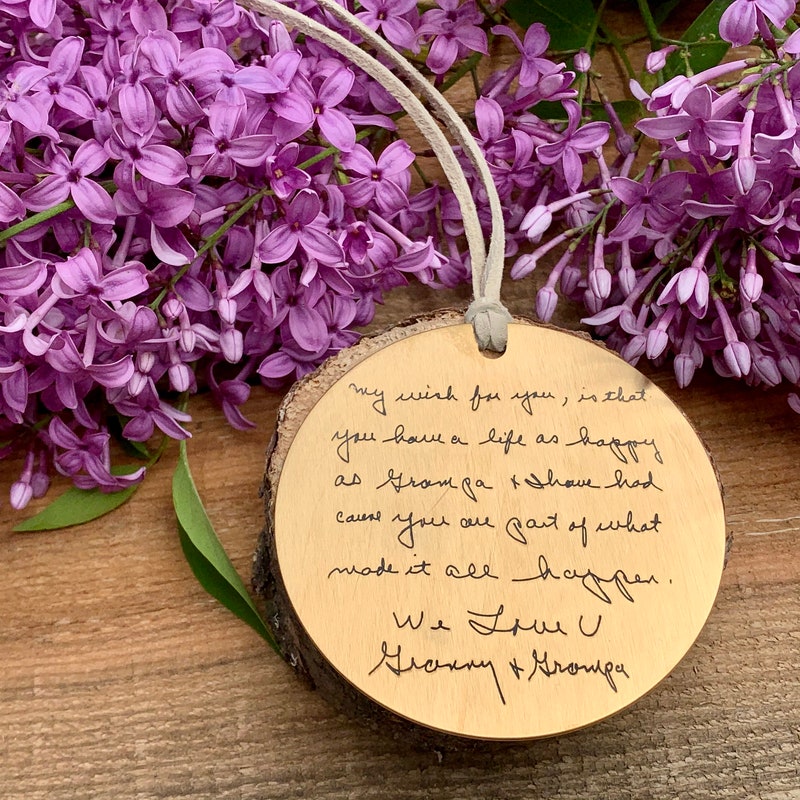 my wish for you, is that
you have a life as happy
as Grampa & I have had
cause you are part of what
made it all happen.
We Love U
Granny & Grampa